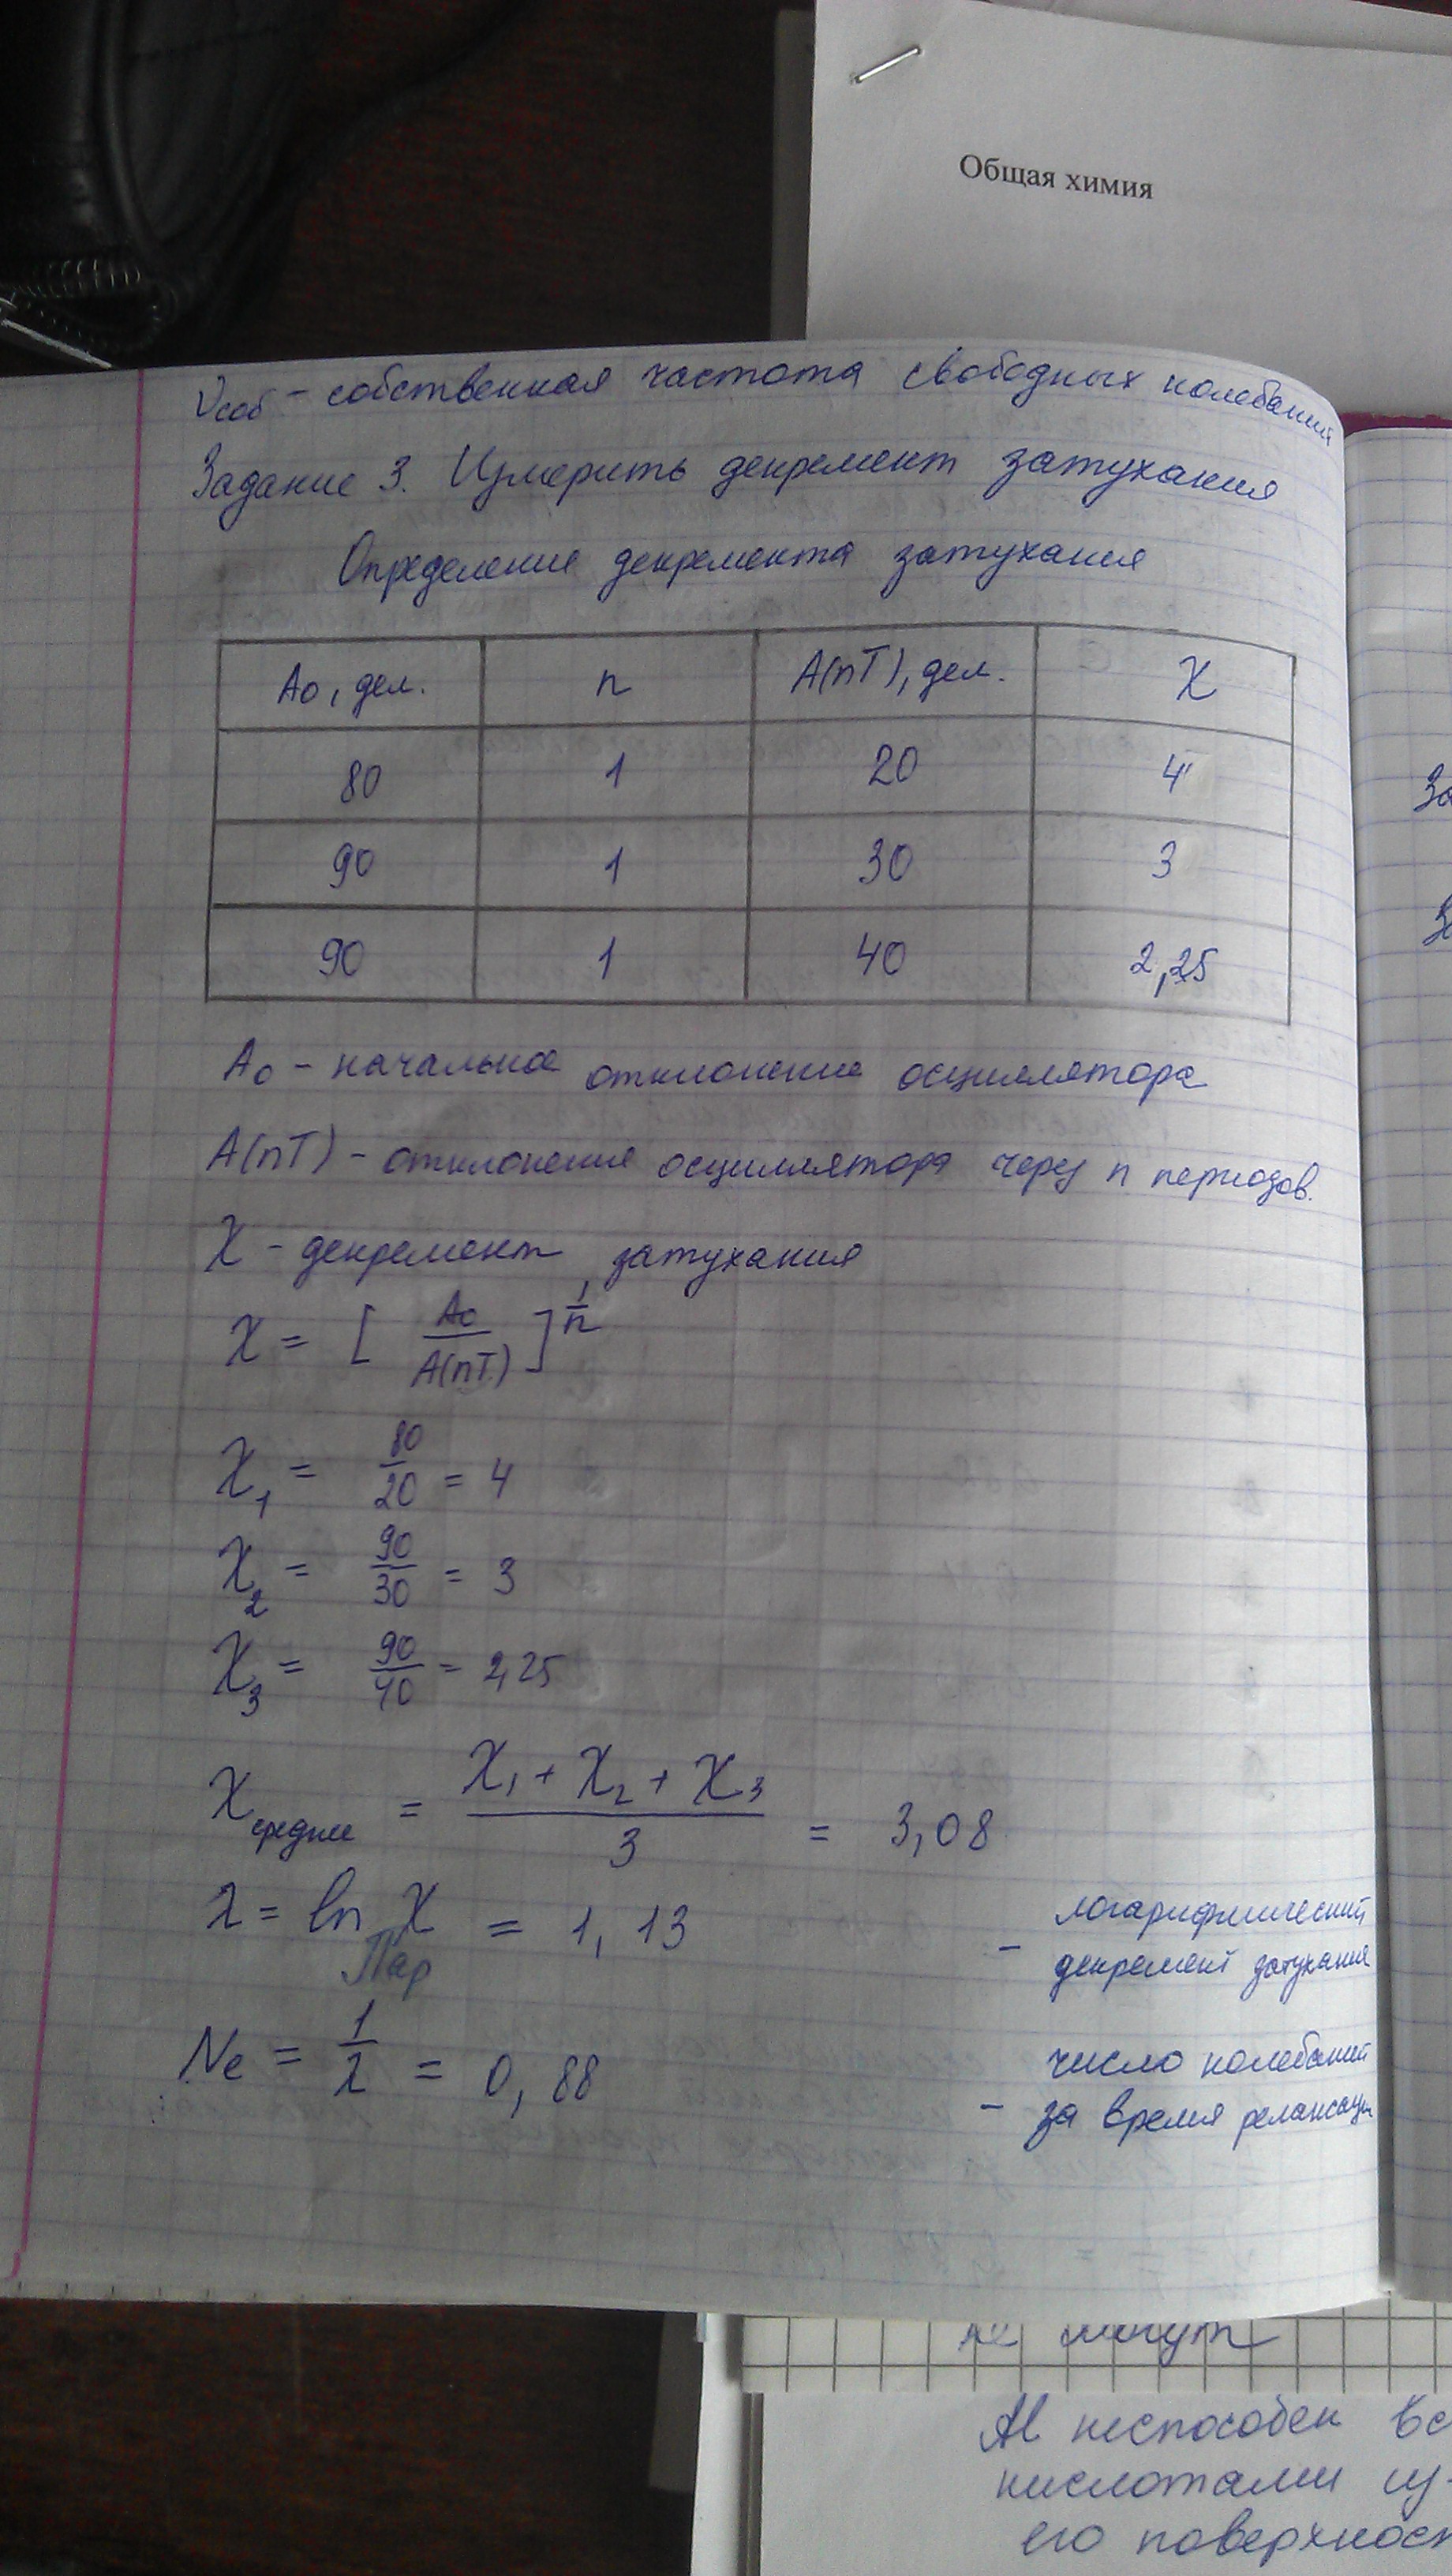 Общая химия
νсоб - собственная частота свободных колебаний
Задание 3. Измерить декремент затухания
Определение декремента затухания
A0, дел. n A(nT), дел. X
80 1 20 4
90 1 30 3
90 1 40 2,25
A0 - начальное отклонение осциллятора
A(nT) - отклонение осциллятора через n периодов.
X - декремент затухания
X = [A0/A(nT)]^1/n
X1 = 80/20 = 4
X2 = 90/30 = 3
X3 = 90/40 = 2,25
Xсреднее = X1 + X2 + X3 / 3 = 3,08
λ = ln X = 1,13 - логарифмический
декремент затухания
Пар
Ne = 1/λ = 0,88 - число колебаний
за время релаксации
За
минут
Al неспособен вс
кислотами из-
его поверхност